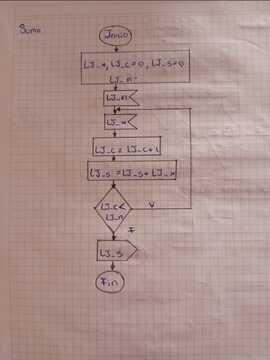 Suma
Inicio
LJ_x, LJ_c=0, LJ_s=0
LJ_n
LJ_n
LJ_x
LJ_c = LJ_c+1
LJ_s = LJ_s+LJ_x
LJ_c<
LJ_n
V
F
LJ_s
Fin